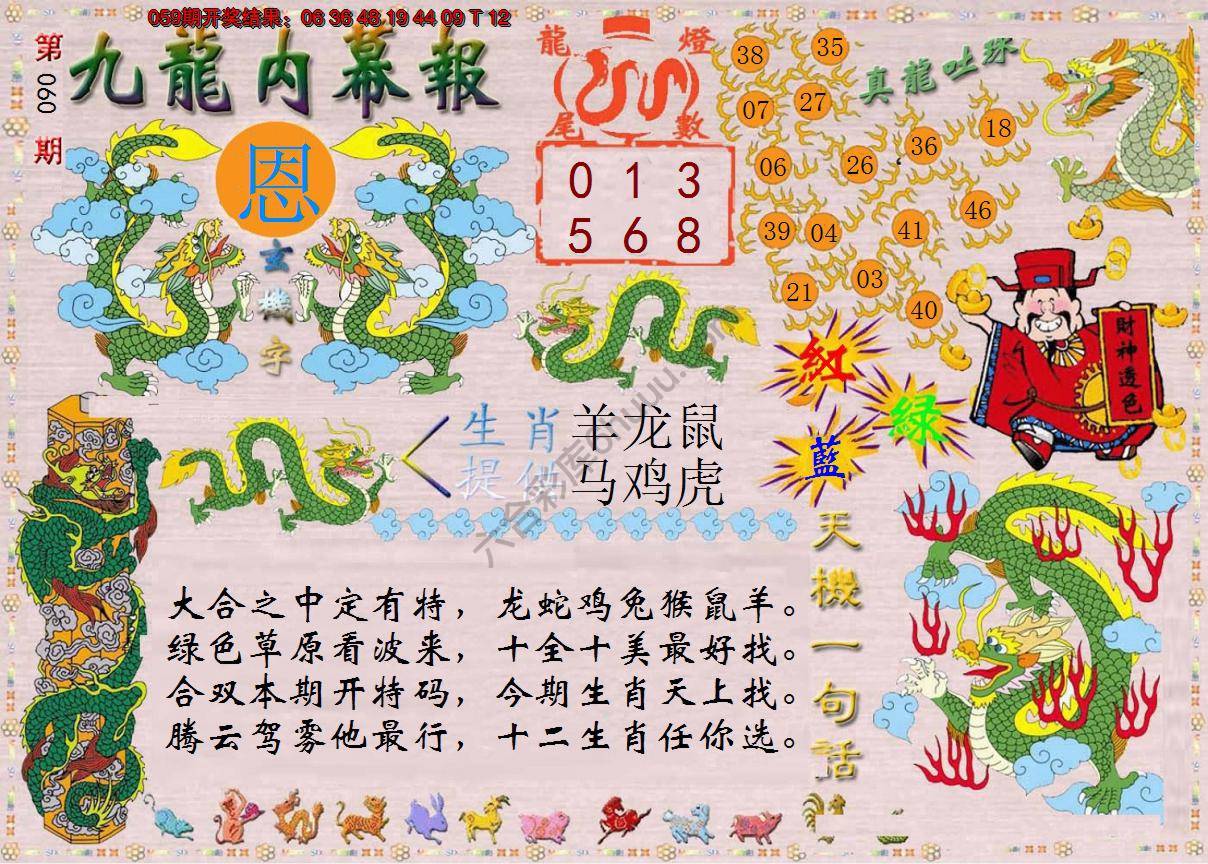 059期开奖结果：06 36 48 19 44 09 T 12
第
090
期
九龍内幕報
恩
玄
機
字
龍 燈
尾 數
0 1 3
5 6 8
真龍吐珠
38 35
07 27
06 26 36 18
39 04 41 46
21 03 40
財神透色
紅
綠
藍
生肖
羊龙鼠
提供
马鸡虎
大合之中定有特，龙蛇鸡兔猴鼠羊。
绿色草原看波来，十全十美最好找。
合双本期开特码，今期生肖天上找。
腾云驾雾他最行，十二生肖任你选。
天機一句話